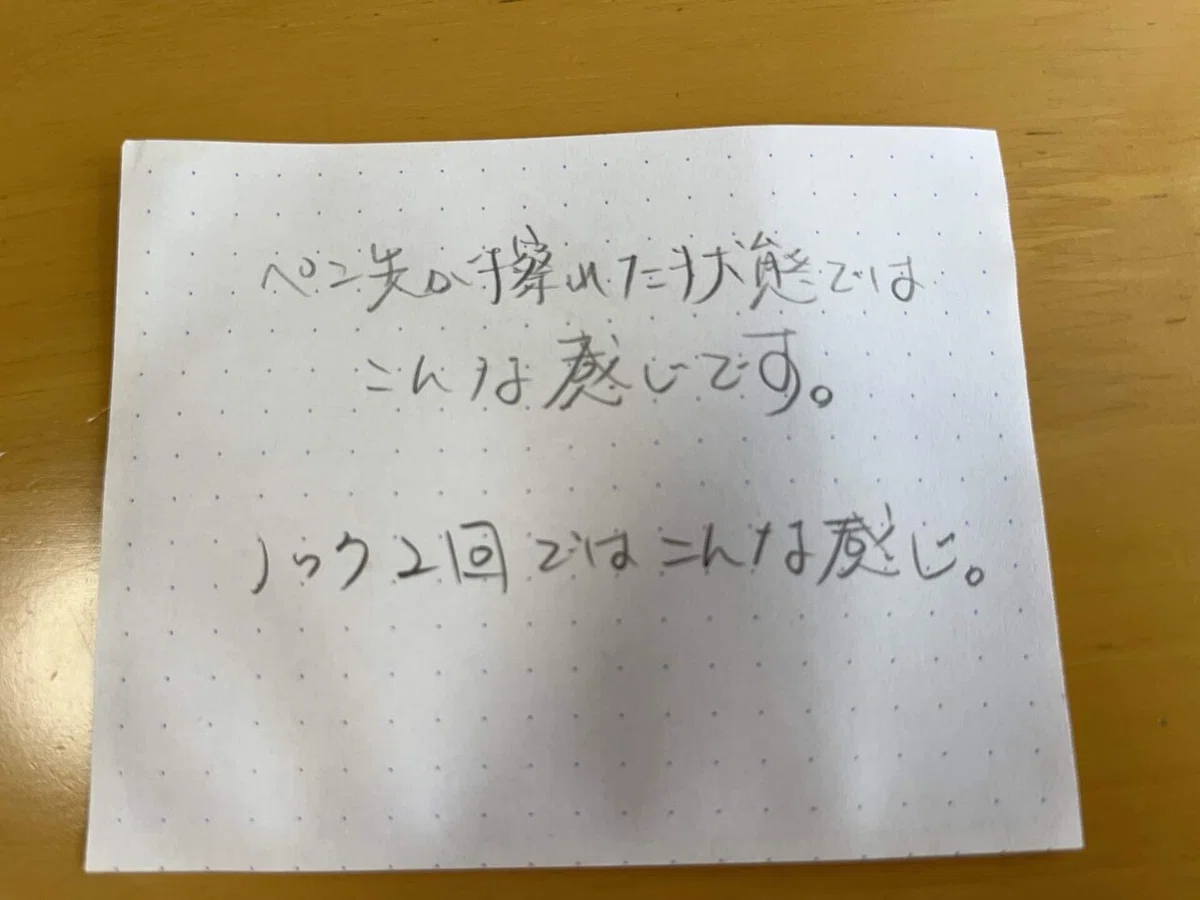 ペン先が擦れた状態では
こんな感じです。
ノック2回ではこんな感じ。